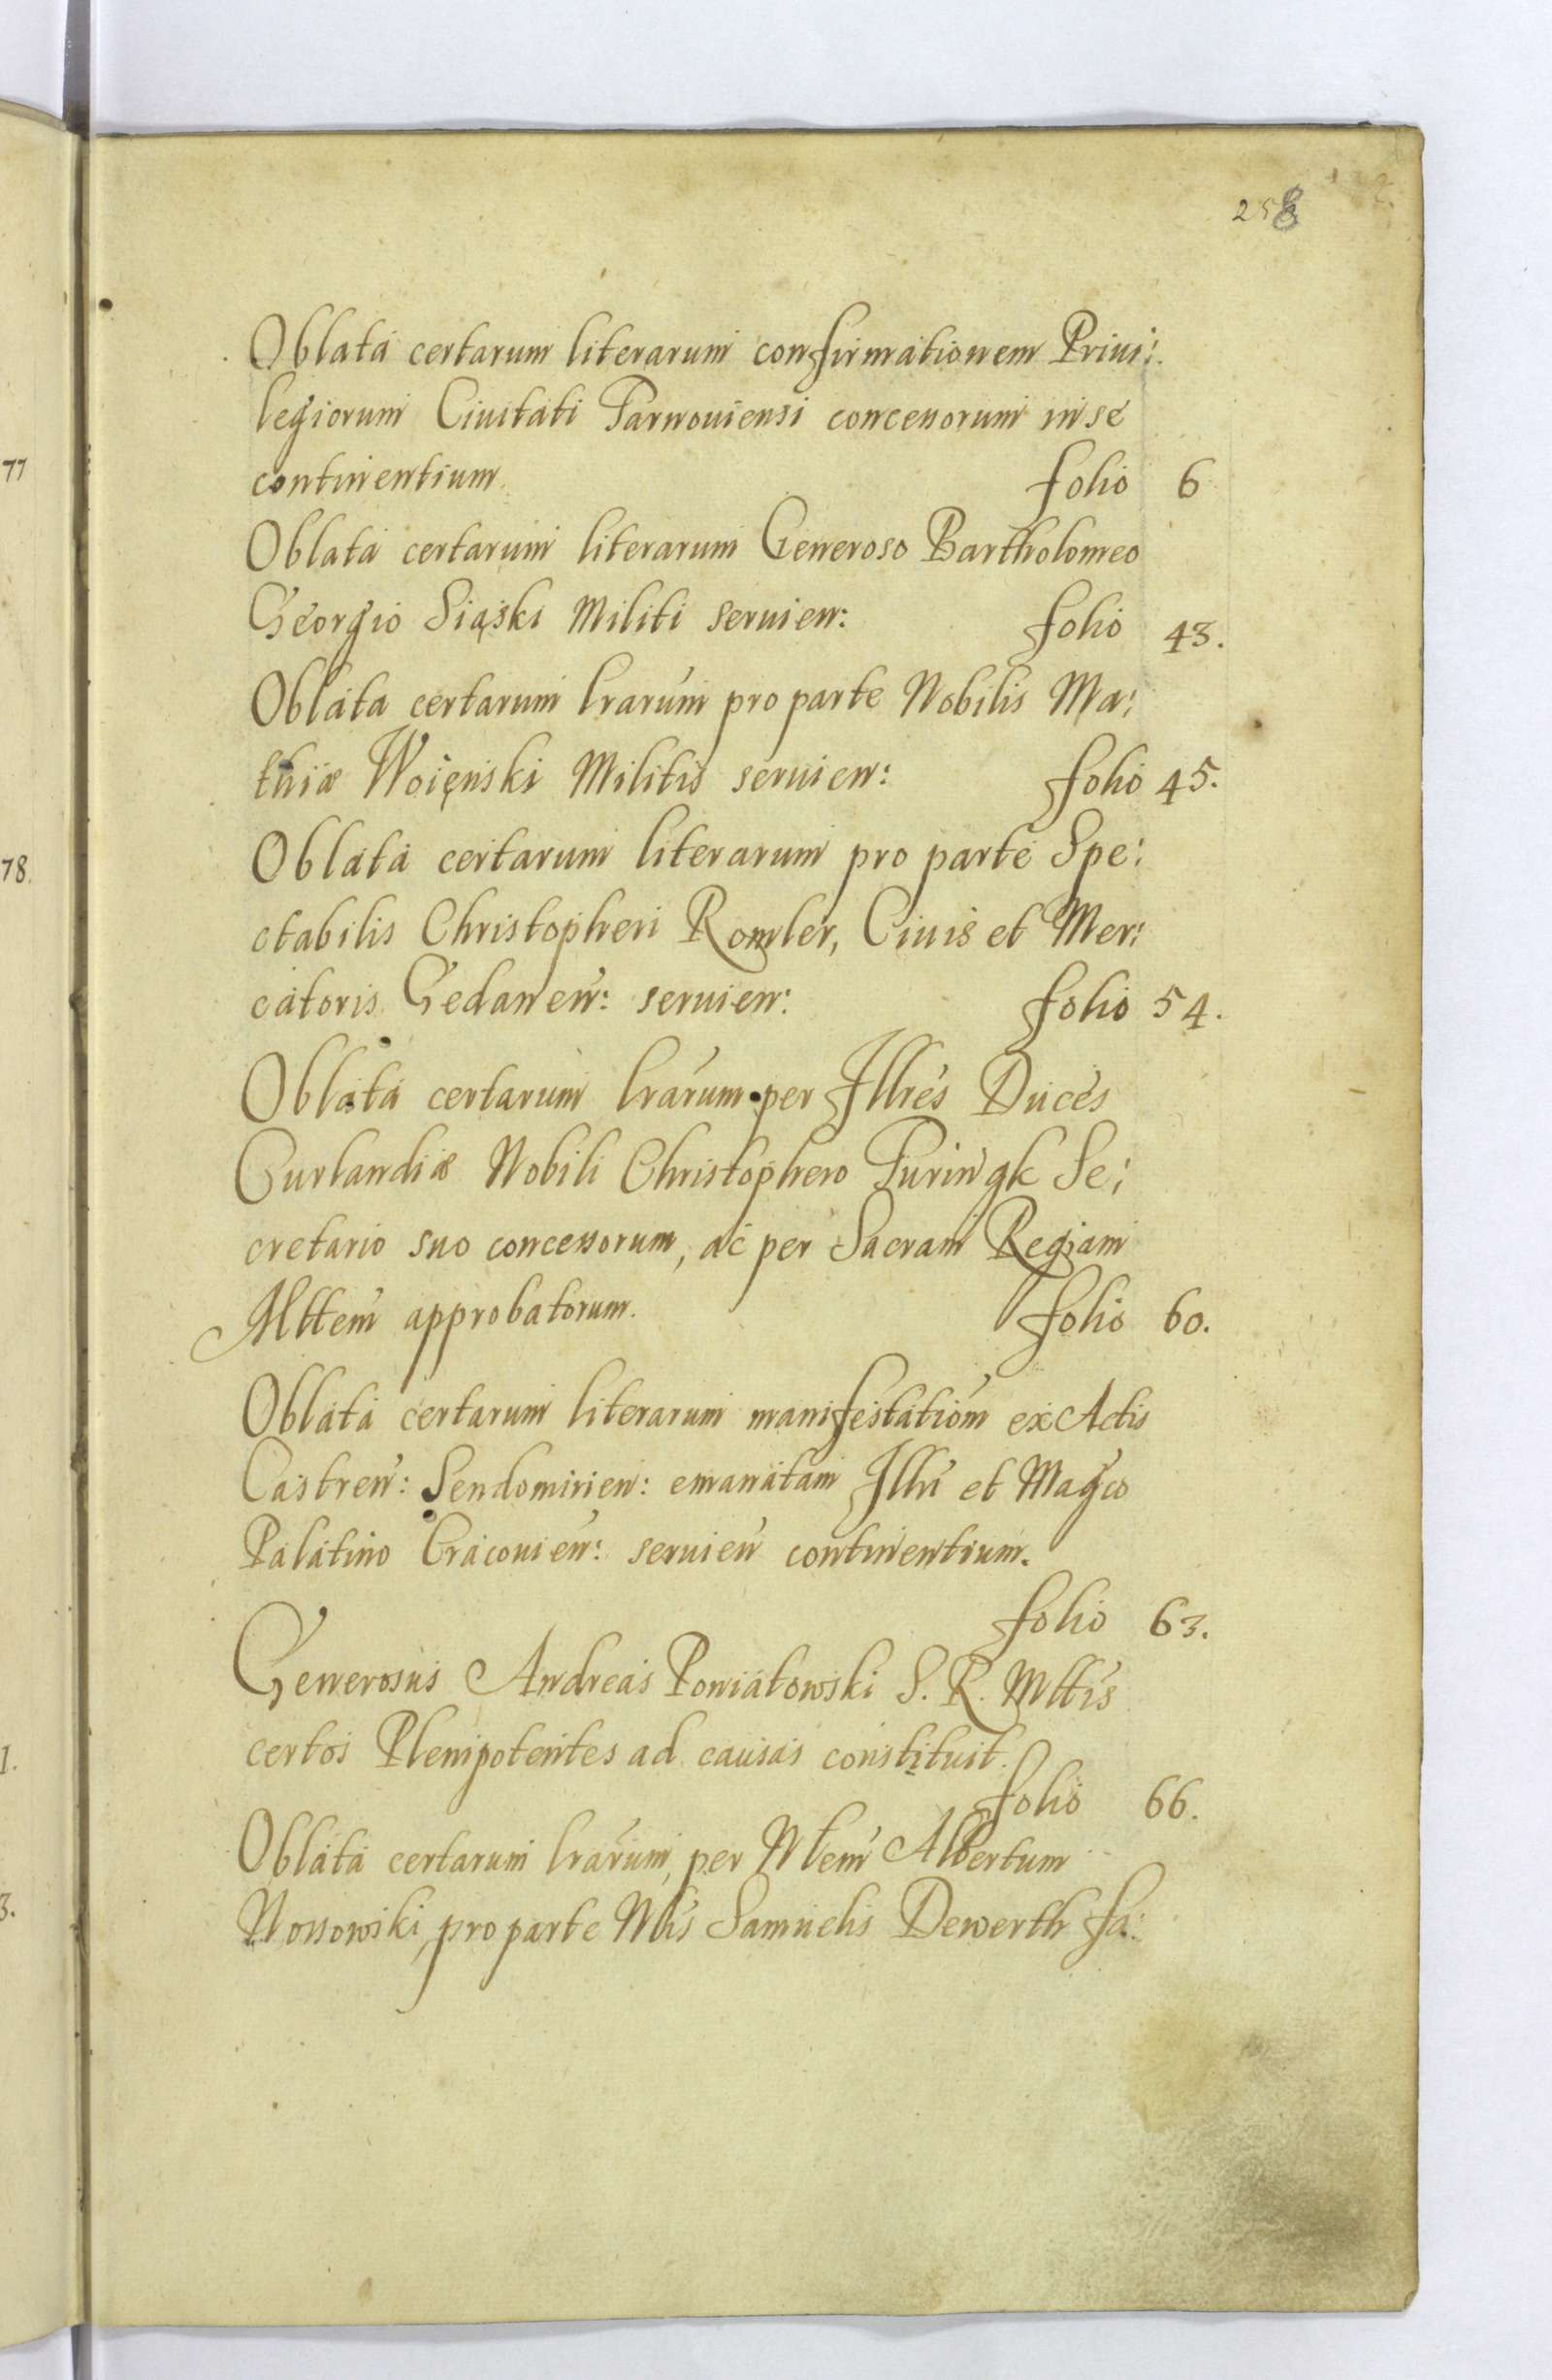 258
Oblata certarum literarum confirmationem Priui:
legiorum Ciuitati Tarnouiensi concessorum in se
continentium folio 6
Oblata certarum literarum Generoso Bartholomeo
Georgio Siąski Militi seruien: folio 43.
Oblata certarum lrarum pro parte Nobilis Ma:
thiæ Woięnski Militis seruien: folio 45.
Oblata certarum literarum pro parte Spe:
ctabilis Christopheri Romler, Ciuis et Mer:
catoris Gedanen: seruien: folio 54.
Oblata certarum lrarum per Illres Duces
Curlandiæ Nobili Christophero Turingk Se:
cretario suo concessorum, ac per Sacram Regiam
Mttem approbatorum. folio 60.
Oblata certarum literarum manifestatiom ex Actis
Castren: Sendomirien: emanatam Illri et Magco
Palatino Cracouien: seruien continentium.
folio 63.
Generosus Andreas Poniatowski S. R. Mttis
certos Plenipotentes ad causas constituit.
folio 66.
Oblata certarum lrarum, per Nlem Albertum
Nossowski, pro parte Nlis Samuelis Dewerth fa:
77
78.
1.
3.